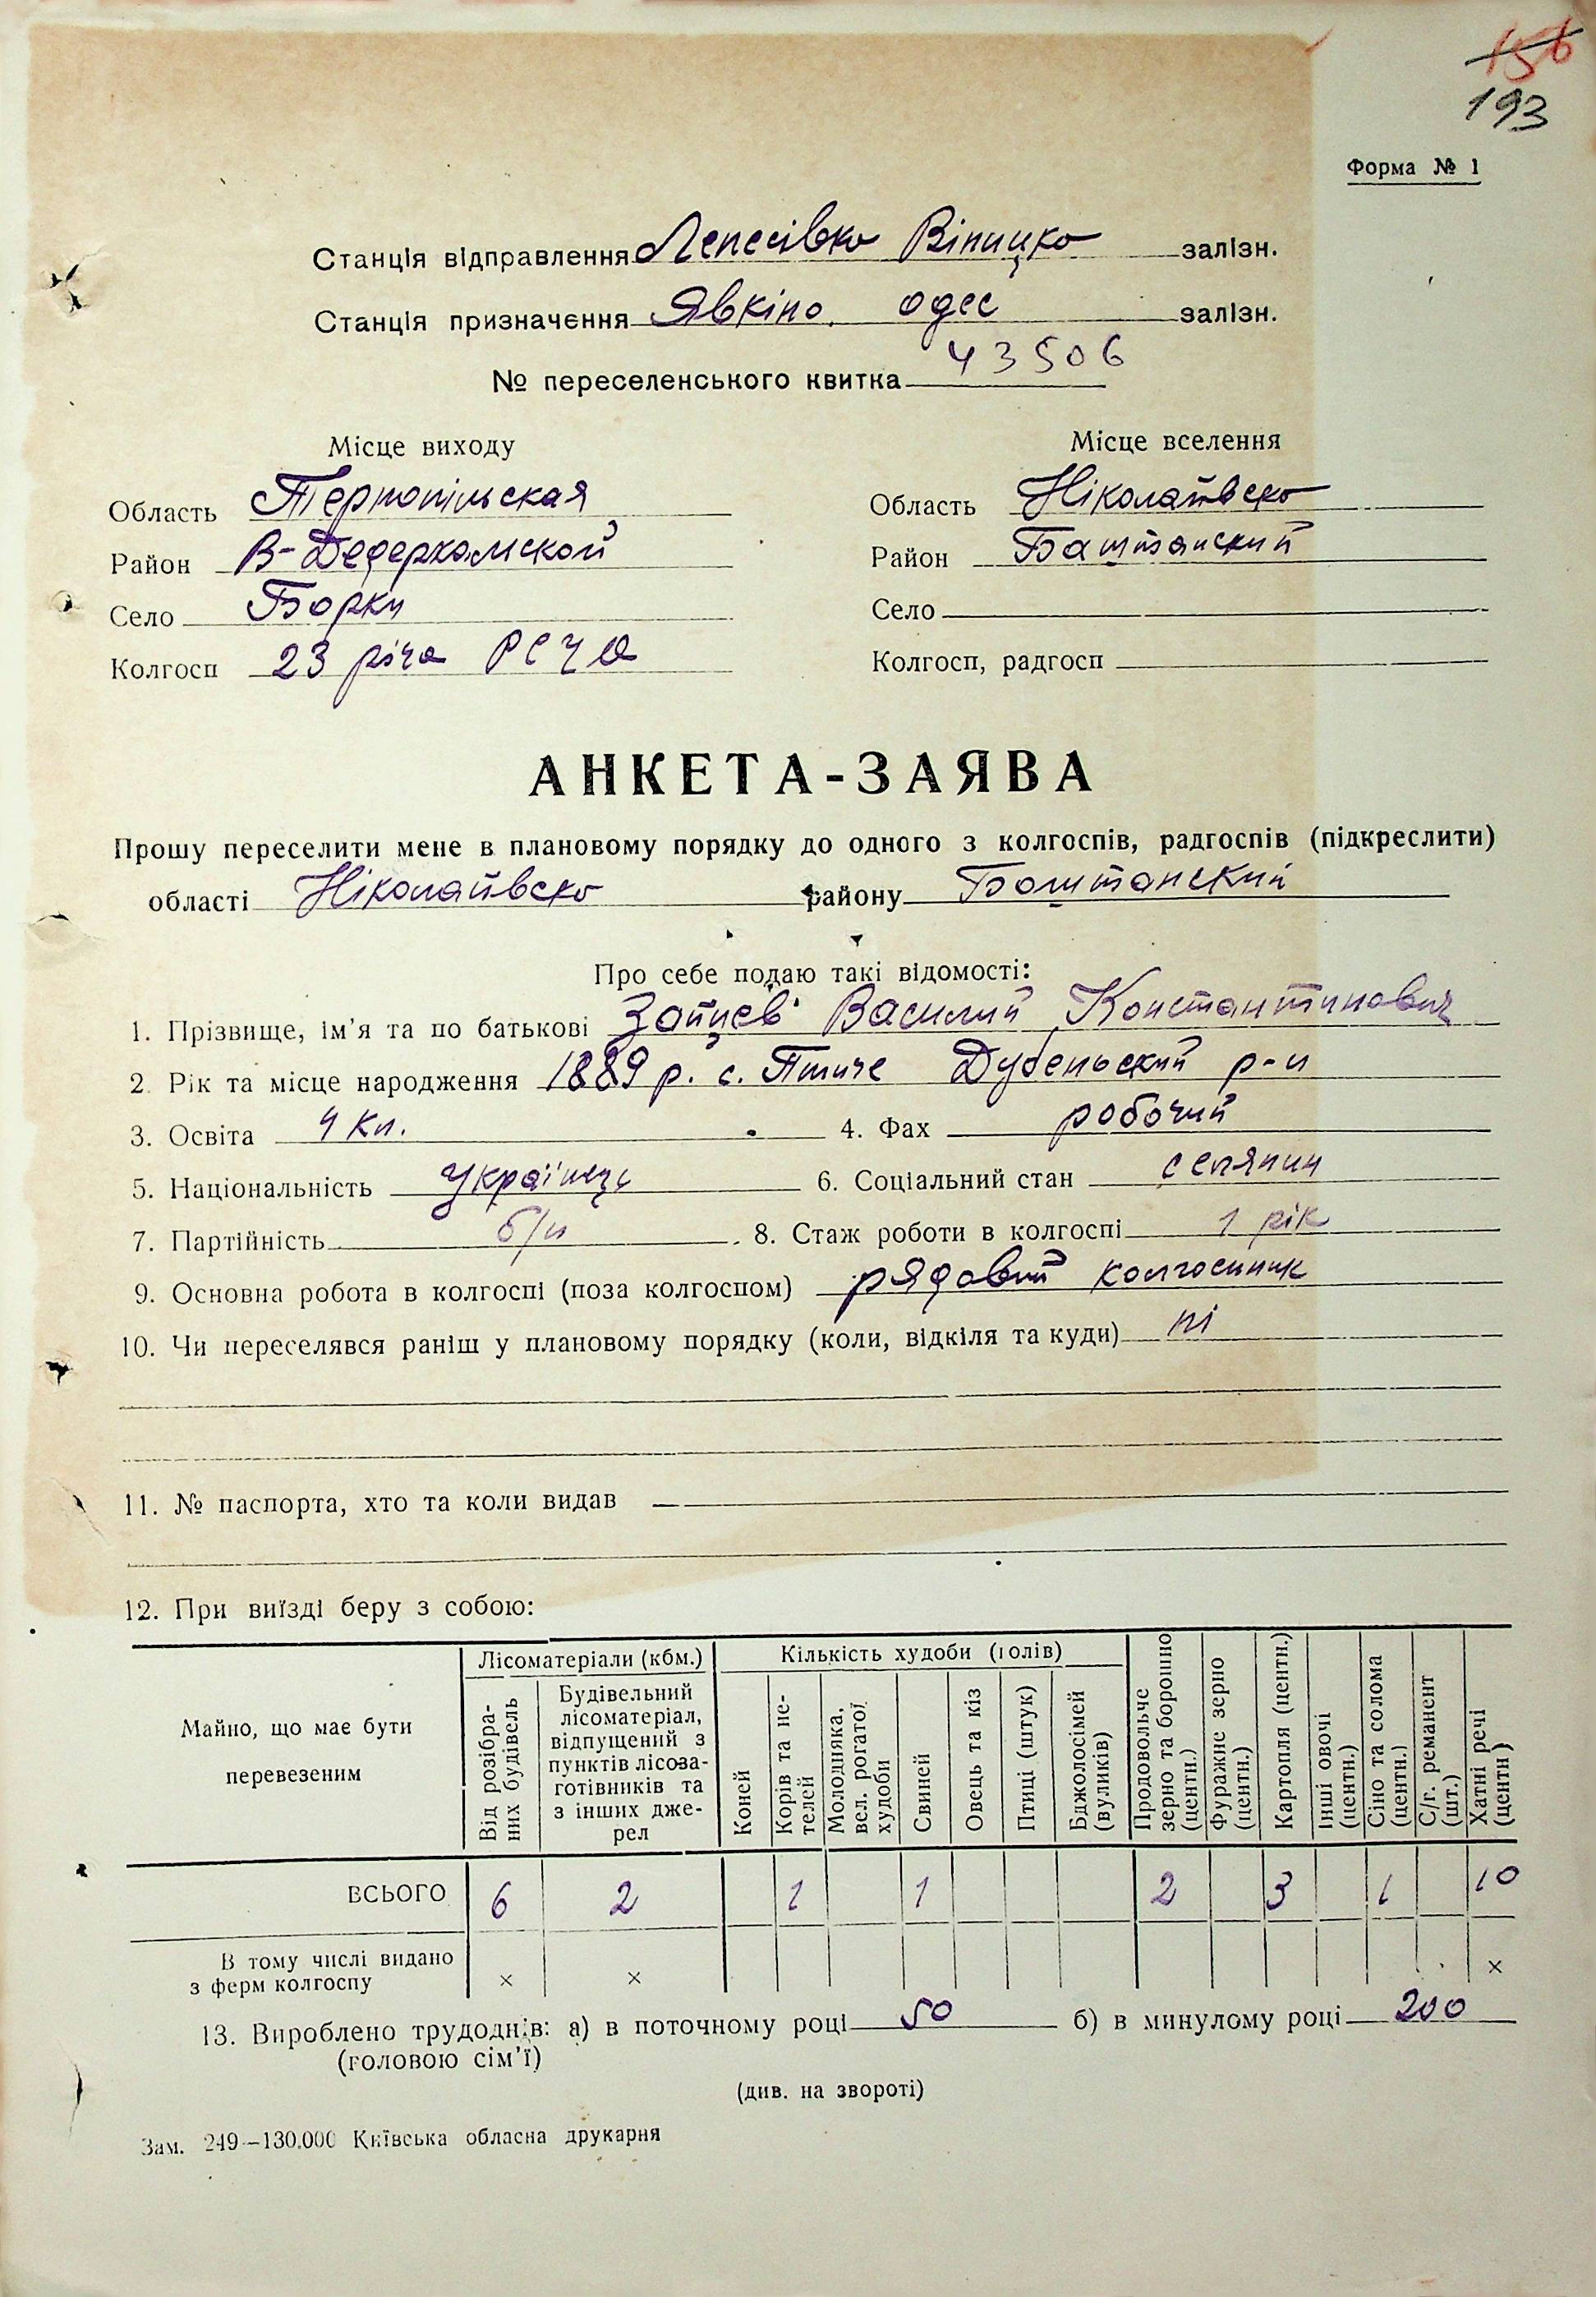 156
193
Форма № 1
Станція відправлення Лепесівко Вініцко залізн.
Станція призначення Явкіно одес залізн.
№ переселенського квитка 43506
Місце виходу
Місце вселення
Область Тернопільская
Область Ніколаївско
Район В-Дедеркальской
Район Баштанский
Село Борки
Село
Колгосп 23 річа РСЧА
Колгосп, радгосп
АНКЕТА-ЗАЯВА
Прошу переселити мене в плановому порядку до одного з колгоспів, радгоспів (підкреслити)
області Ніколаївско району Баштанский
Про себе подаю такі відомості:
1. Прізвище, ім’я та по батькові Зайцев Василий Константинович
2. Рік та місце народження 1889 р. с. Птиче Дубеньский р-н
3. Освіта 4 кл. 4. Фах робочий
5. Національність Українець 6. Соціальний стан селянин
7. Партійність б/п 8. Стаж роботи в колгоспі 1 рік
9. Основна робота в колгоспі (поза колгоспом) рядовий колгоспник
10. Чи переселявся раніш у плановому порядку (коли, відкіля та куди) ні
11. № паспорта, хто та коли видав —
12. При виїзді беру з собою:
Майно, що має бути перевезеним
Лісоматеріали (кбм.)
Кількість худоби (голів)
Від розібраних будівель
Будівельний лісоматеріал, відпущений з пунктів лісозаготівників та з інших джерел
Коней
Корів та нетелей
Молодняка, вел. рогатої худоби
Свиней
Овець та кіз
Птиці (штук)
Бджолосімей (вуликів)
Продовольче зерно та борошно (центн.)
Фуражне зерно (центн.)
Картопля (центн.)
Інші овочі (центн.)
Сіно та солома (центн.)
С/г. реманент (шт.)
Хатні речі (центн)
ВСЬОГО 6 2 1 1 2 3 1 10
В тому числі видано
з ферм колгоспу × × ×
13. Вироблено трудоднів: а) в поточному році 50 б) в минулому році 200
(головою сім’ї)
(див. на звороті)
Зам. 249—130.000 Київська обласна друкарня